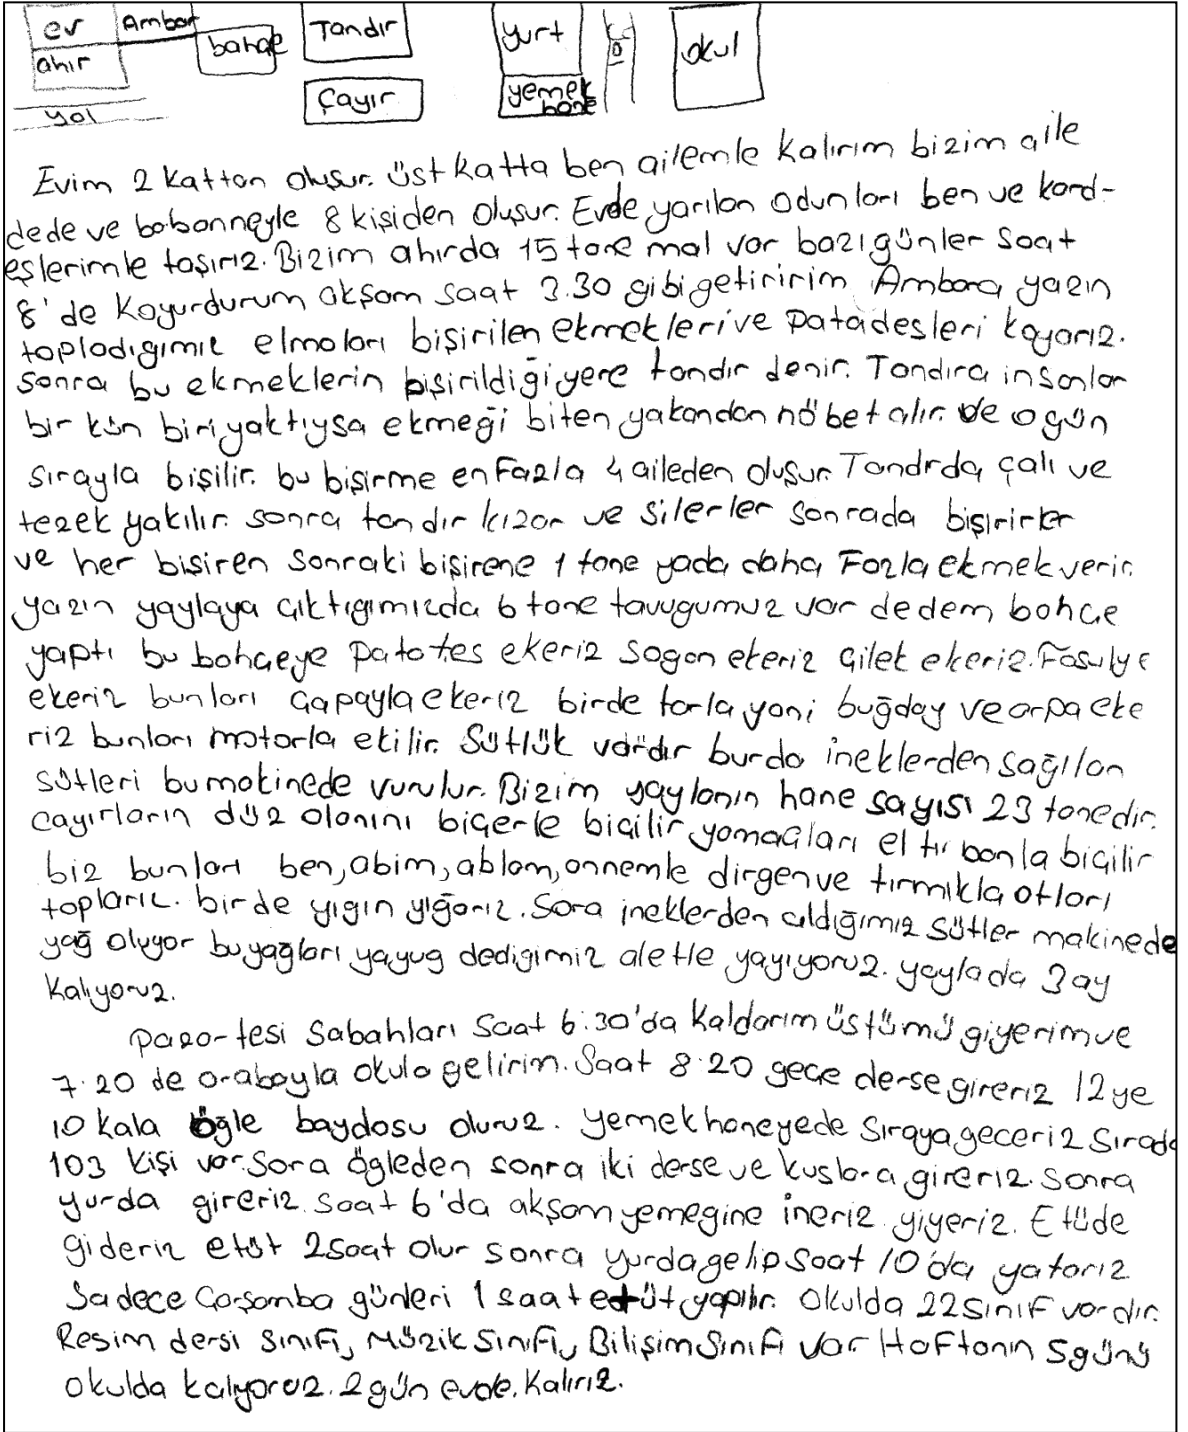 ev Ambar bahçe Tandır yurt yol okul
ahır Çayır yemek hane
yol
Evim 2 kattan oluşur. üst katta ben ailemle kalırım bizim aile
dede ve babanneyle 8 kişiden oluşur. Evde yarılan odunları ben ve kard-
eşlerimle taşırız. Bizim ahırda 15 tane mal var bazı günler saat
8'de koyurdurum akşam saat 3.30 gibi getiririm Ambara yazın
topladıgımız elmaları bişirilen ekmekleri ve patadesleri koyarız.
sonra bu ekmeklerin bişirildiği yere tandır denir. Tandıra insanlar
bir kün biri yaktıysa ekmeği biten yakandan nöbet alır. ve o gün
sırayla bişilir. bu bişirme en fazla 4 aileden oluşur. Tandrda çalı ve
tezek yakılır. sonra tandır kızar ve silerler sonrada bişirirler
ve her bişiren sonraki bişirene 1 tane yada daha Fazla ekmek verir.
yazın yaylaya çıktıgımızda 6 tane tavugumuz var dedem bahçe
yaptı bu bahçeye patates ekeriz sogan ekeriz çilek ekeriz. Fasulye
ekeriz bunları çapayla ekeriz birde tarla yani buğday ve arpa eke
riz bunları motorla ekilir. Sütlük vardır burda ineklerden sağılan
sütleri bu makinede vurulur. Bizim yaylanın hane sayısı 23 tanedir.
çayırların düz olanını biçerle biçilir yamaçları el tırbanla biçilir
biz bunları ben, abim, ablam, annemle dirgen ve tırmıkla otları
toplarız. birde yıgın yığarız. Sora ineklerden aldığımız sütler makinede
yağ oluyor bu yağları yayug dedigimiz aletle yayıyoruz. yaylada 3 ay
kalıyoruz.
pazartesi sabahları saat 6:30'da kaldarım üstümü giyerim ve
7.20 de arabayla okula gelirim. Saat 8.20 geçe derse gireriz 12 ye
10 kala öğle baydosu oluruz. yemekhaneyede sıraya geceriz sırada
103 kişi var. Sora ögleden sonra iki derse ve kuslara gireriz. sonra
yurda gireriz. saat 6'da akşam yemegine ineriz yiyeriz. Etüde
gideriz etüt 2 saat olur sonra yurda gelip saat 10'da yatarız
Sadece Çarşamba günleri 1 saat etüt yapılır. Okulda 22 sınıf vardır.
Resim dersi sınıfı, Müzik sınıfı, Bilişim sınıfı var Haftanın 5 günü
okulda kalıyoruz. 2 gün evde. Kalırız.